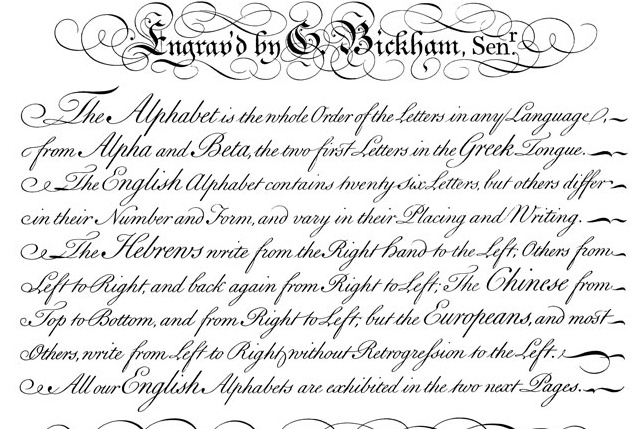 Engrav'd by G. Bickham, Senr.
The Alphabet is the whole Order of the Letters in any Language,
from Alpha and Beta, the two first Letters in the Greek Tongue.
The English Alphabet contains twenty six Letters, but others differ
in their Number and Form, and vary in their Placing and Writing.
The Hebrews write from the Right hand to the Left; Others from
Left to Right, and back again from Right to Left; The Chinese from
Top to Bottom, and from Right to Left; but the Europeans, and most
Others, write from Left to Right, without Retrogression to the Left.
All our English Alphabets are exhibited in the two next Pages.